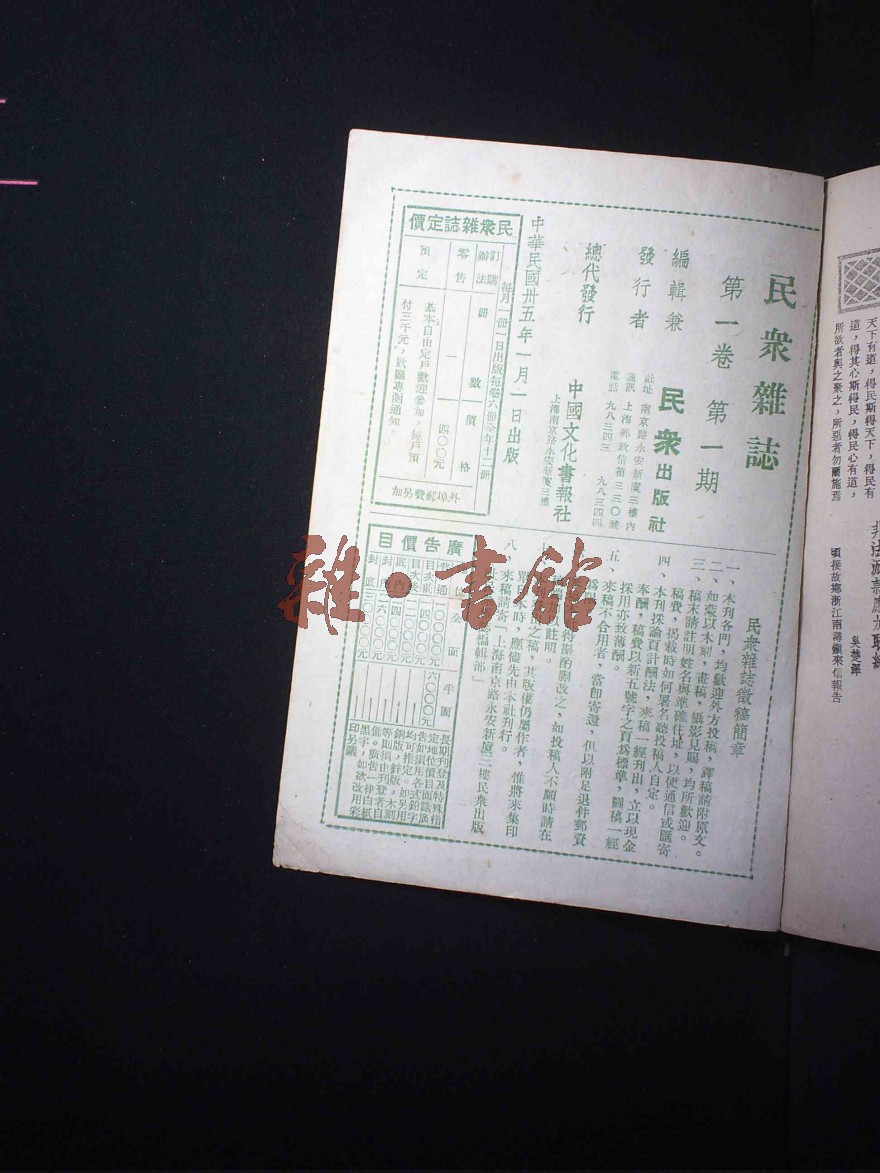 民衆雜誌
第一卷 第一期
編輯兼
發行者
民衆出版社
社址 南京路永安新廈三樓內
通訊 上海郵政信箱三三〇號
電話 九八三四三 九八三四四
總代發行
中國文化書報社
上海南京路永安新廈三樓
中華民國卅五年一月一日出版
民衆雜誌定價
每月一冊一日出版每卷六冊全年十二冊
訂購辦法
冊數
價格
零售
一
四〇〇元
預定
基本自由定戶歡迎參加,每戶預
付三千元,款匯專函通知。
外埠郵費另加
民衆雜誌徵稿簡章
一、本刊各門,均歡迎外方投稿,譯稿請附原文。
二、如蒙以木刻,畫稿,攝影見賜,均所歡迎。
三、稿末請註明姓名與準確住址,以便通信或匯寄
稿費,揭載時如何署名聽投稿人自定。
四、本刊採論頁計酬法,來稿一經刊出,立以現金
奉酬,稿費以新五號字之頁爲標準,圖稿一經
採用亦致薄酬。
五、來稿不合用者,當卽寄還,但以附足退件郵資
酌願改之,如投稿人不願時請在
註明。
之稿,其版權仍屬作者,惟將來集印
單行本時,應儘先由本社刊行。
八、來稿請寄「上海南京路永安新廈三樓民衆出版
編輯部」
廣告價目
全面
半面
目次前
一四〇〇〇元
目次後
一二〇〇〇元
六〇〇〇元
封底
三〇〇〇〇元
長期刊登及特殊指
定地位價目面議廣
告如須用各式鉛字
均可指定。如另用
銅版,鋅版,木刻
等則須由刊登者自
備。廣告一律白紙
黑字,如欲改用彩
印另議
天下有道,得民斯得天下,得民有
道,得其心斯得民,得民心有道,
所欲者與之聚之,所惡者勿爾施焉
吳楚
頃接故鄉浙江南潯鎭來信報告
雜·書館